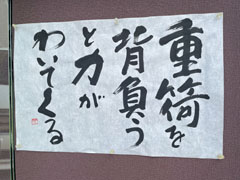 重荷を
背負う
と力が
わいてくる